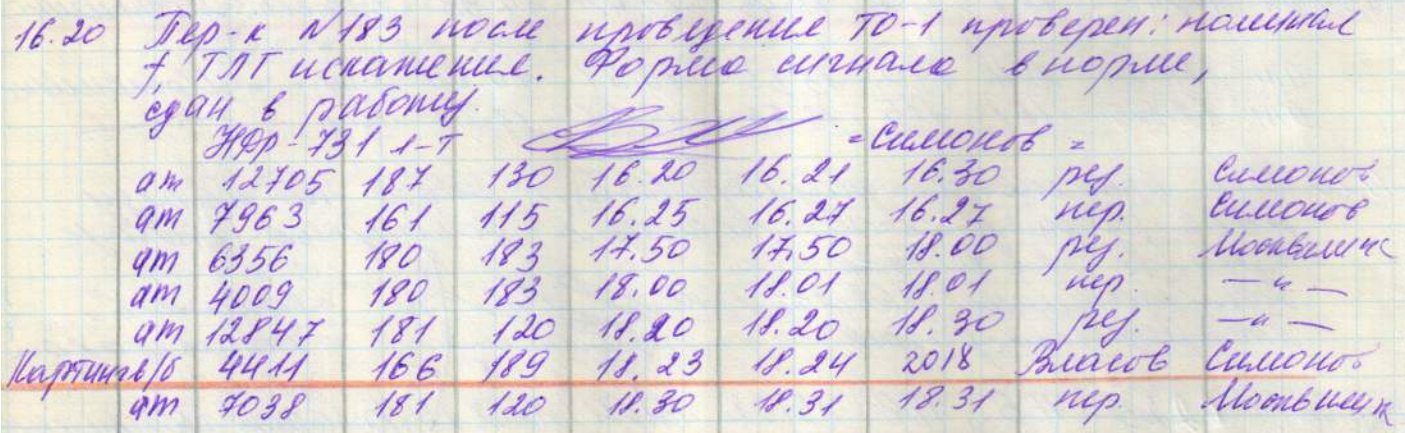 16.20 Пер-к №183 после проведение ТО-1 проверен: номинал
f, ТЛГ искажение. Форма сигнала в норме,
сдан в работу.
НДР-731 1-Т =Симонов=
ат 12705 187 130 16.20 16.21 16.30 рез. Симонов
ат 7963 161 115 16.25 16.27 16.27 пер. Симонов
ат 6356 180 183 17.50 17.50 18.00 рез.
ат 4009 180 183 18.00 18.01 18.01 пер. —"—
ат 12847 181 120 18.20 18.20 18.30 рез. —"—
в/б 4411 166 189 18.23 18.24 2018 Власов Симонов
ат 7038 181 120 18.30 18.31 18.31 пер.